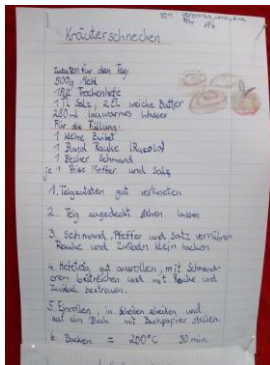 Von: Veronika,
Kräuterschnecken
Zutaten für den Teig:
500g Mehl
1 Pä Trockenhefe
1 TL Salz, 2 EL weiche Butter
250ml lauwarmes Wasser
Für die Füllung:
1 kleine Zwiebel
1 Bund Rauke (Rucola)
1 Becher Schmand
je 1 Prise Pfeffer und Salz
1. Teigzutaten gut verkneten
2. Teig zugedeckt gehen lassen
3. Schmand, Pfeffer und Salz verrühren
Rauke und Zwiebeln klein hacken
4. Hefeteig gut ausrollen, mit Schmand-
crem bestreichen und mit Rauke und
Zwiebel bestreuen.
5. Einrollen, in Scheiben schneiden und
auf ein Blech mit Backpapier stellen.
6. Backen = 200°C 30 min.